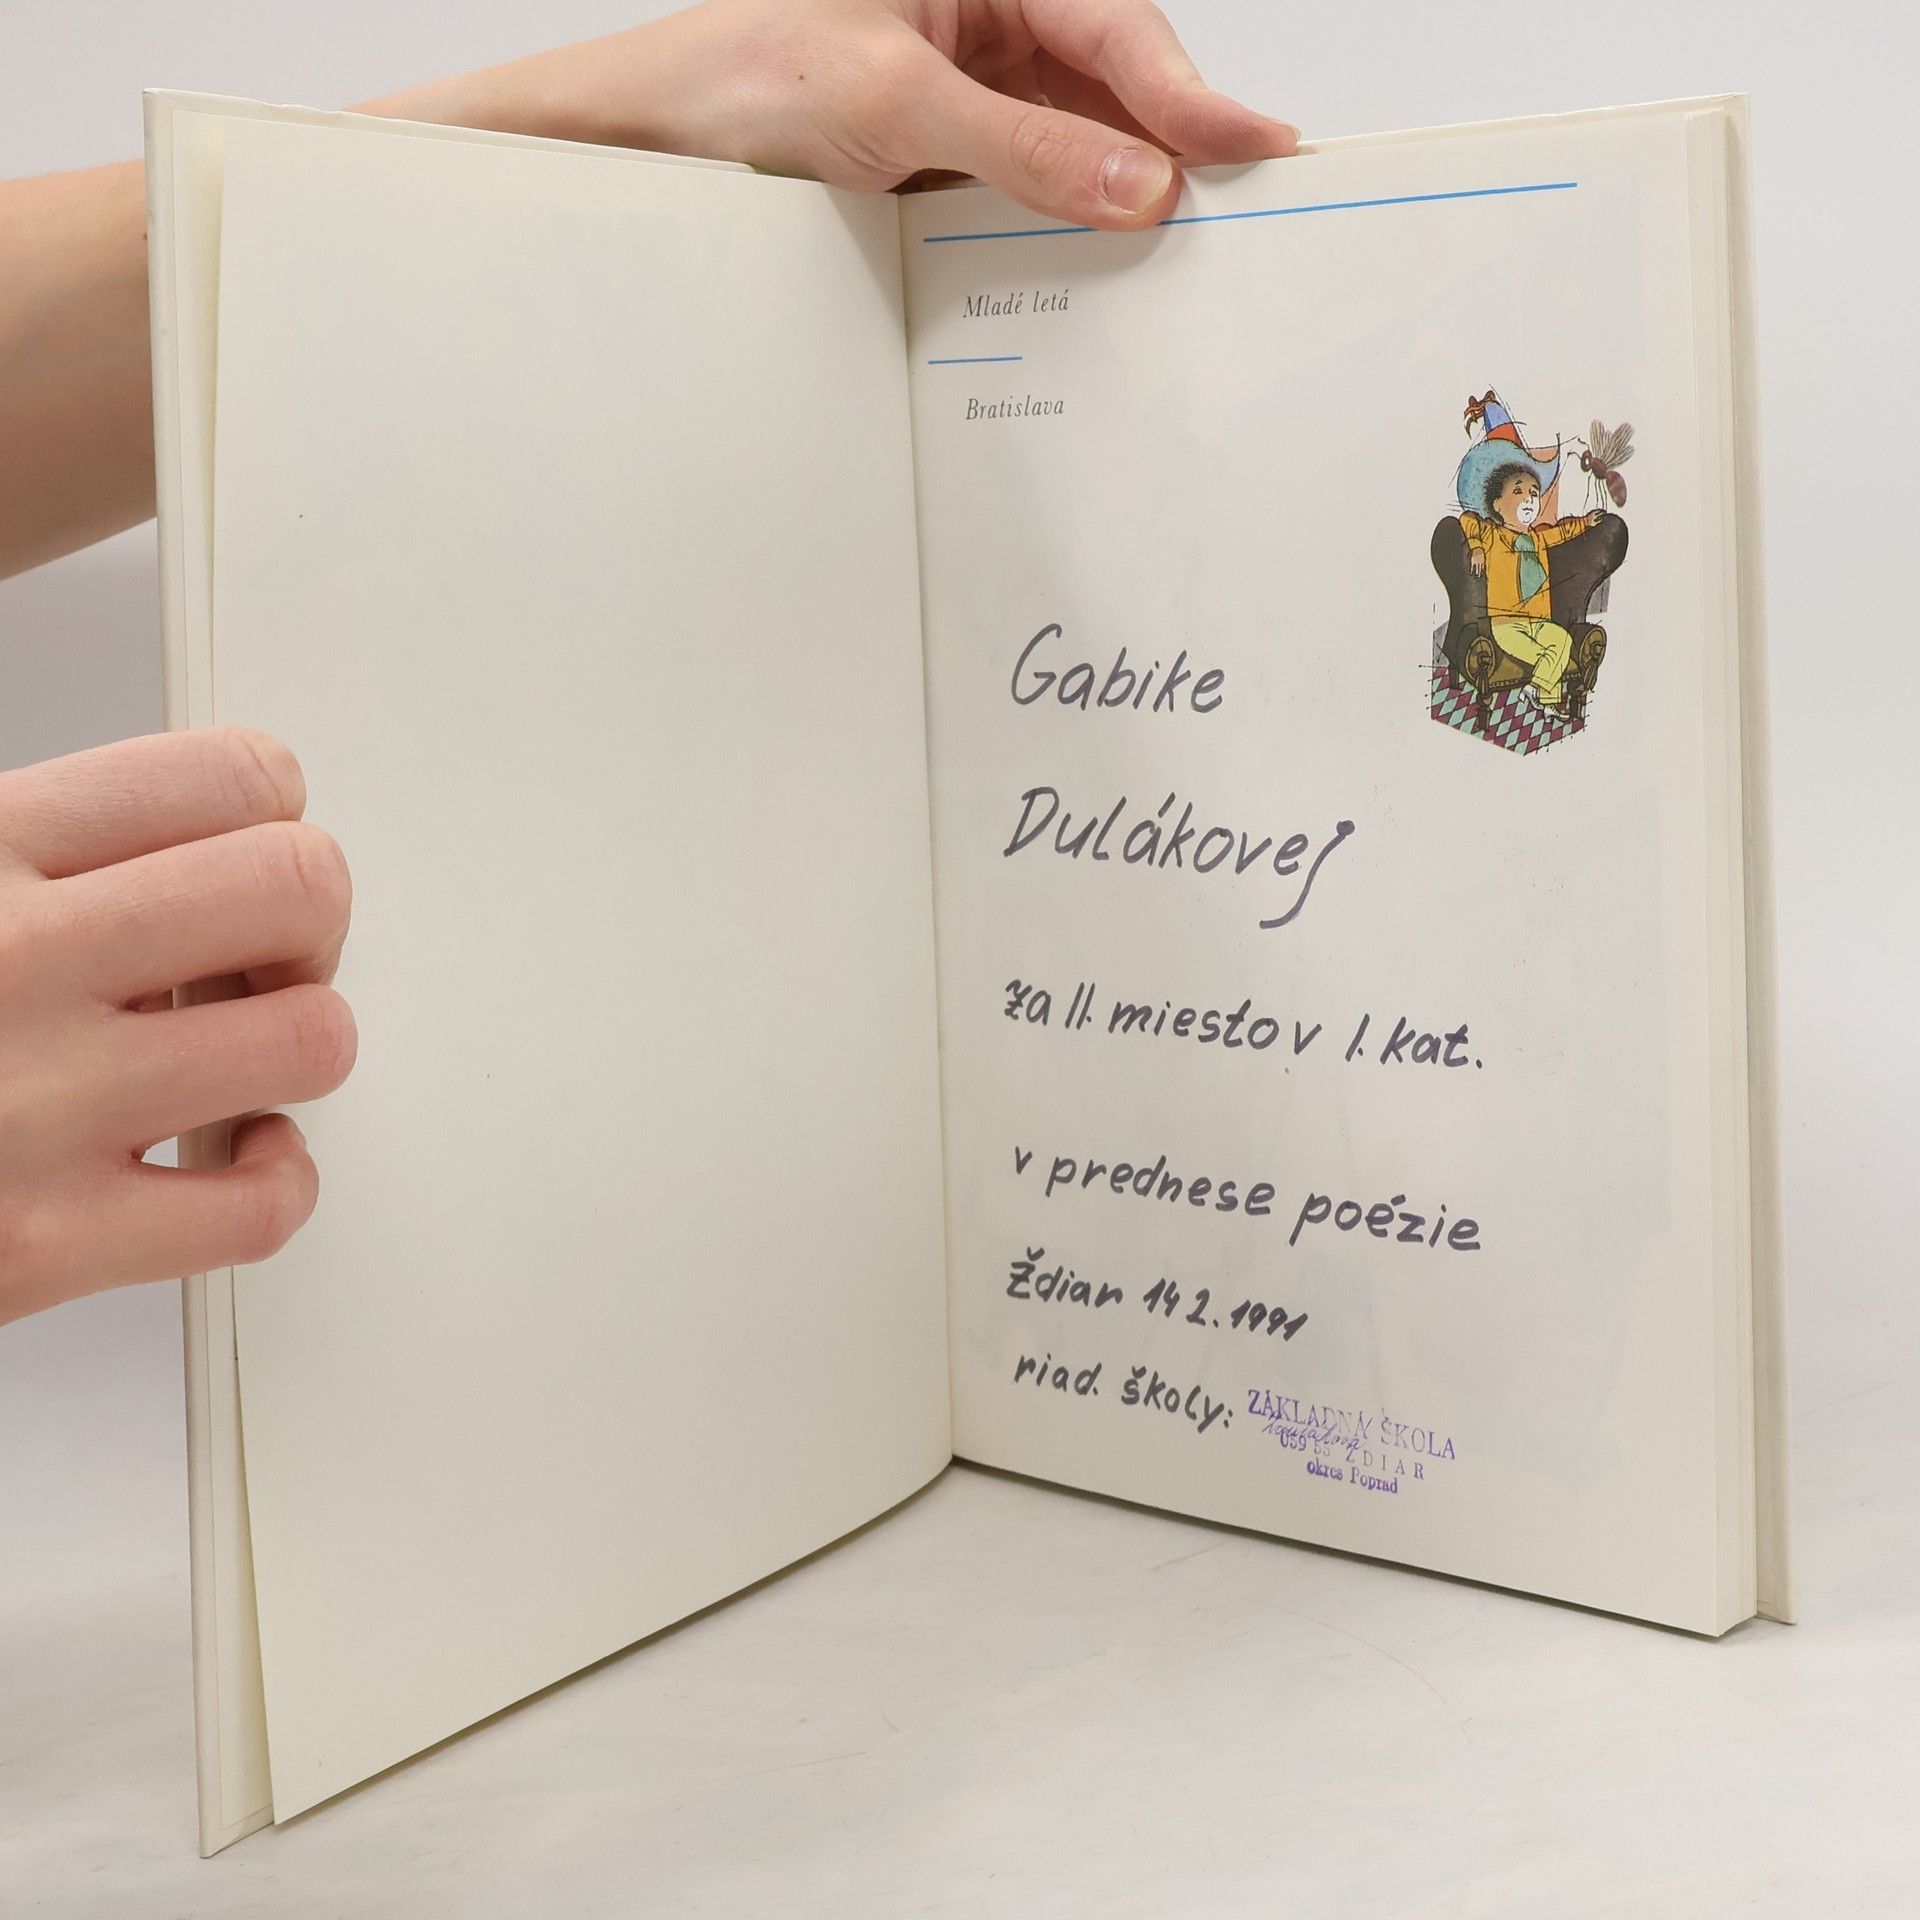 Mladé letá
Bratislava
Gabike
Dulákovej
za II. miesto v I. kat.
v prednese poézie
Ždiar 14 2. 1991
riad. školy:
ZÁKLADNÁ ŠKOLA
059 55 ŽDIAR
okres Poprad